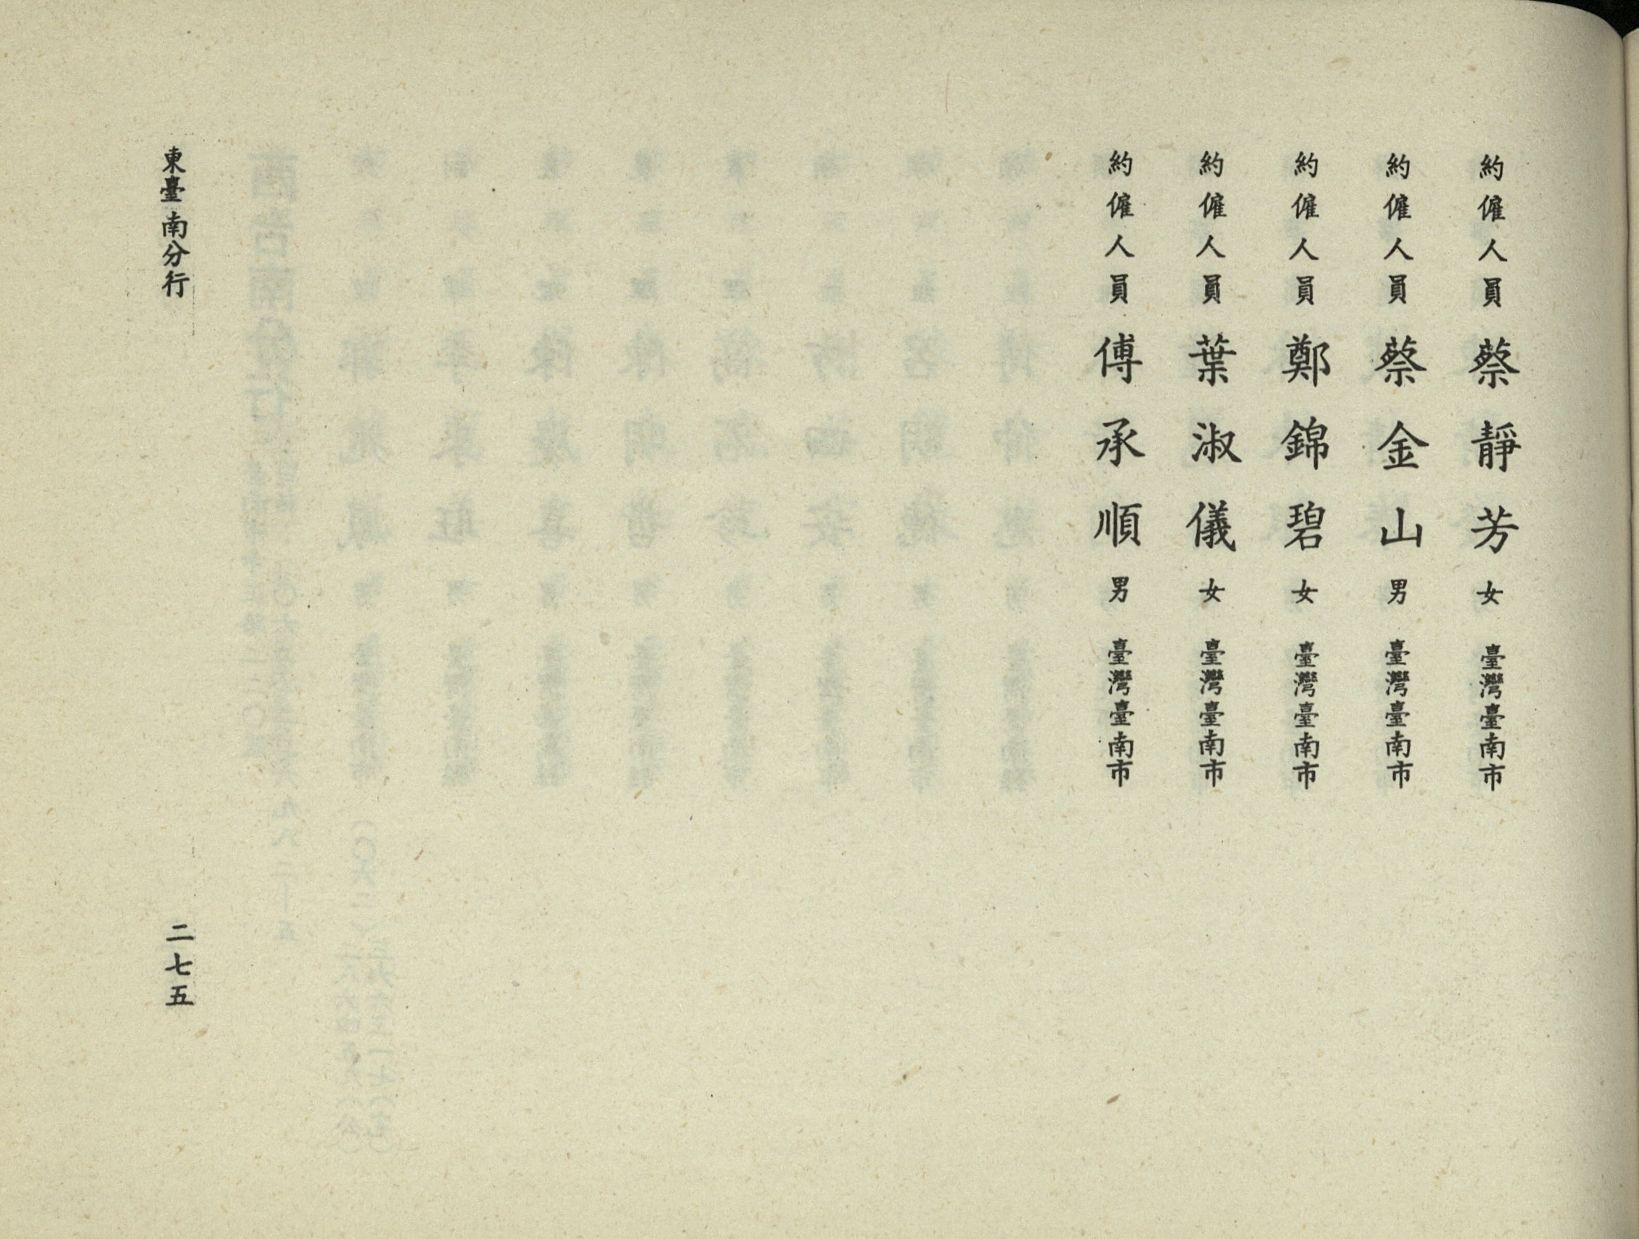 約僱人員蔡靜芳女臺灣臺南市
約僱人員蔡金山男臺灣臺南市
約僱人員鄭錦碧女臺灣臺南市
約僱人員葉淑儀女臺灣臺南市
約僱人員傅承順男臺灣臺南市
東臺南分行
二七五